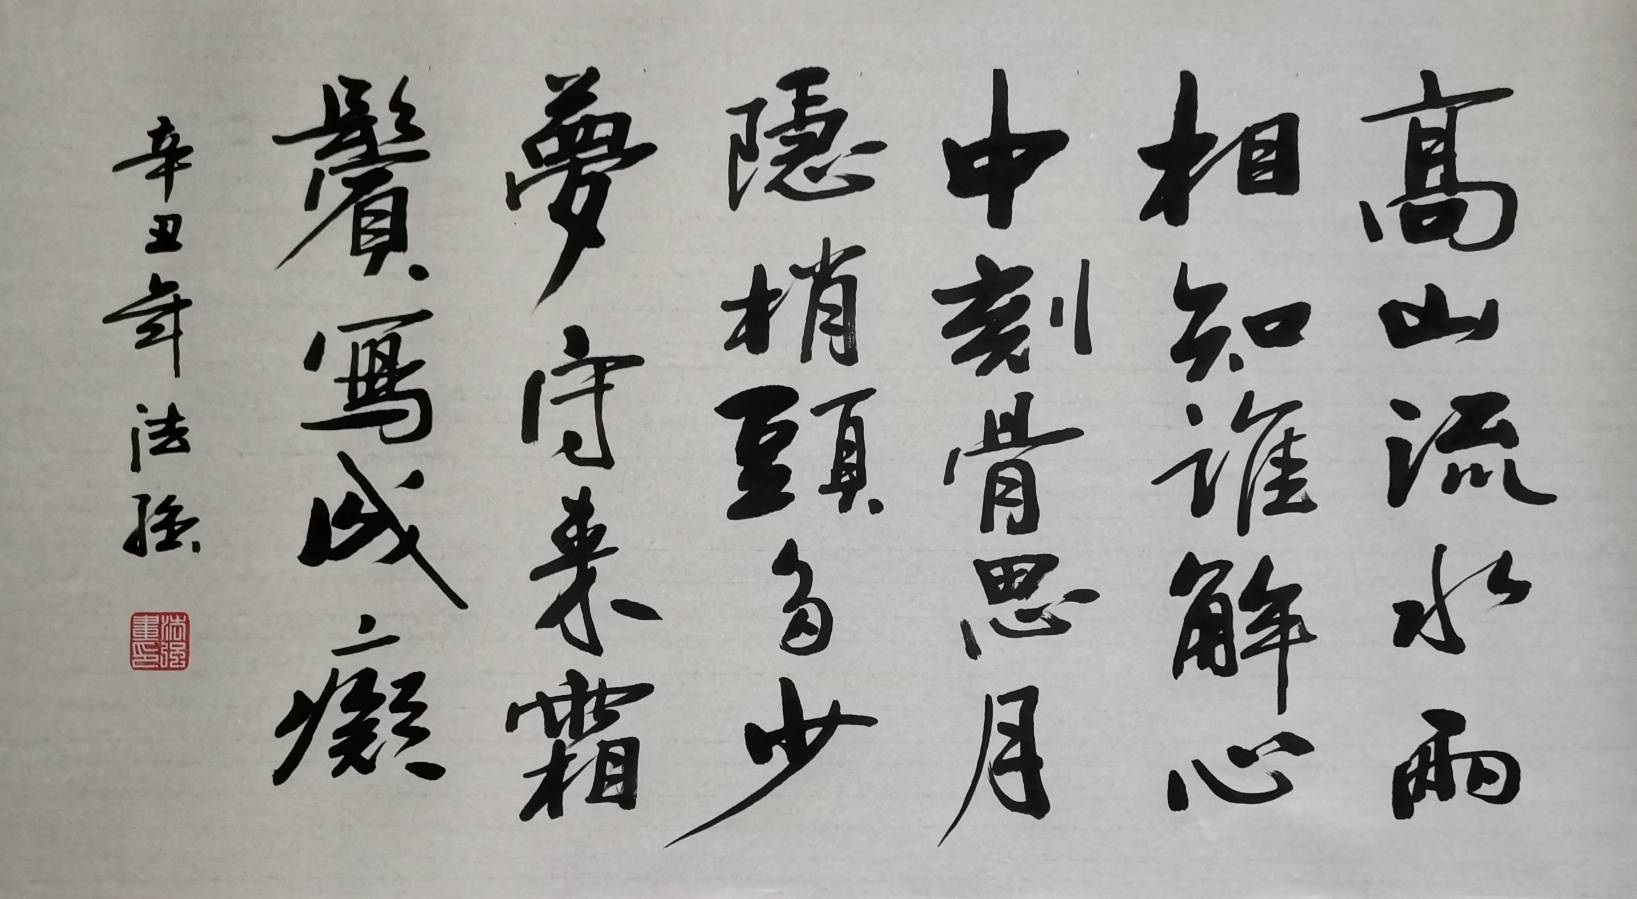 高山流水兩
相知誰解心
中刻骨思月
隱梢頭多少
夢守来霜
鬢寫成癡
辛丑年法強
法強書印